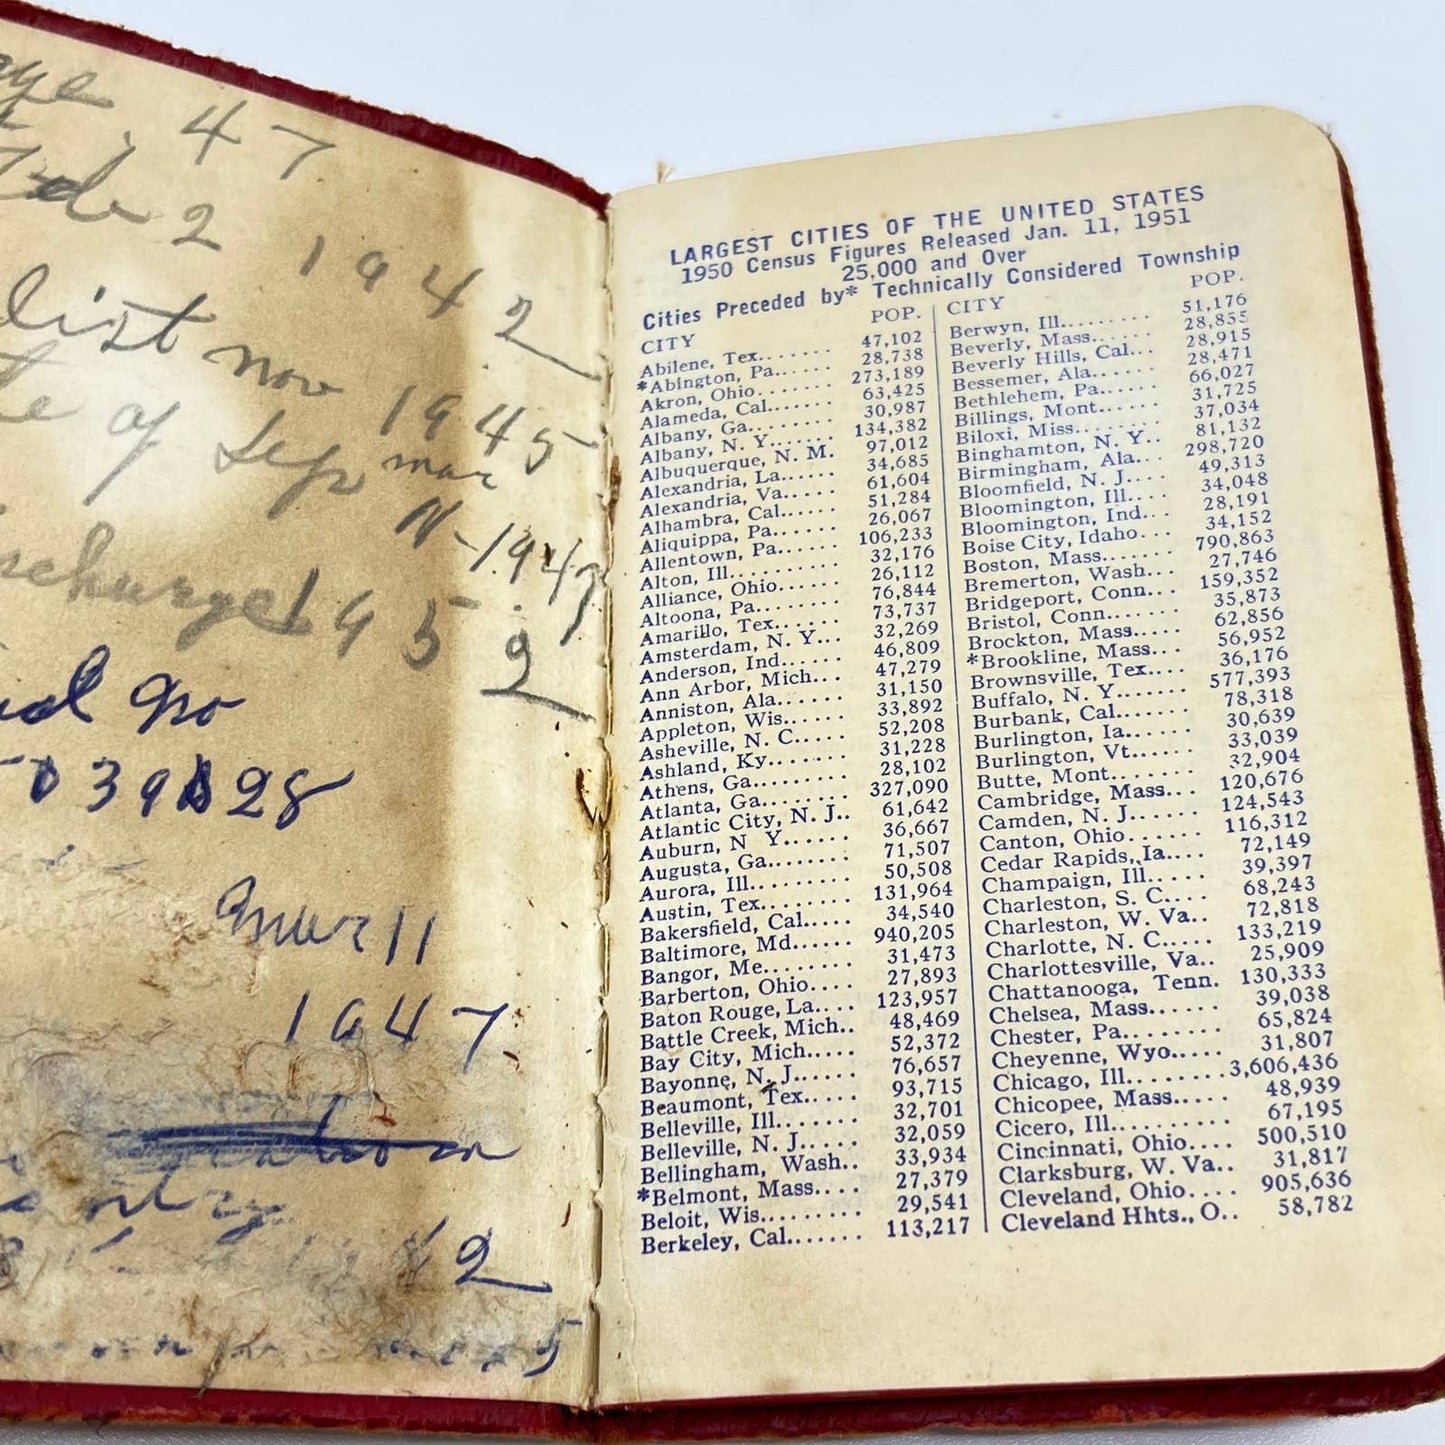 47
2
1942
list nov 1945
of Sep mar
11-1947
1952
no
Mar 11
1947
LARGEST CITIES OF THE UNITED STATES
1950 Census Figures Released Jan. 11, 1951
25,000 and Over
Cities Preceded by* Technically Considered Township
CITY POP.
Abilene, Tex....... 47,102
*Abington, Pa...... 28,738
Akron, Ohio........ 273,189
Alameda, Cal....... 63,425
Albany, Ga......... 30,987
Albany, N. Y....... 134,382
Albuquerque, N. M. 97,012
Alexandria, La..... 34,685
Alexandria, Va..... 61,604
Alhambra, Cal...... 51,284
Aliquippa, Pa...... 26,067
Allentown, Pa...... 106,233
Alton, Ill.......... 32,176
Alliance, Ohio...... 26,112
Altoona, Pa........ 76,844
Amarillo, Tex...... 73,737
Amsterdam, N. Y... 32,269
Anderson, Ind...... 46,809
Ann Arbor, Mich... 47,279
Anniston, Ala...... 31,150
Appleton, Wis...... 33,892
Asheville, N. C..... 52,208
Ashland, Ky........ 31,228
Athens, Ga......... 28,102
Atlanta, Ga........ 327,090
Atlantic City, N. J.. 61,642
Auburn, N Y....... 36,667
Augusta, Ga........ 71,507
Aurora, Ill.......... 50,508
Austin, Tex......... 131,964
Bakersfield, Cal..... 34,540
Baltimore, Md...... 940,205
Bangor, Me......... 31,473
Barberton, Ohio.... 27,893
Baton Rouge, La.... 123,957
Battle Creek, Mich.. 48,469
Bay City, Mich..... 52,372
Bayonne, N. J...... 76,657
Beaumont, Tex..... 93,715
Belleville, Ill....... 32,701
Belleville, N. J..... 32,059
Bellingham, Wash.. 33,934
*Belmont, Mass.... 27,379
Beloit, Wis.......... 29,541
Berkeley, Cal....... 113,217
CITY POP.
Berwyn, Ill......... 51,176
Beverly, Mass...... 28,855
Beverly Hills, Cal... 28,915
Bessemer, Ala...... 28,471
Bethlehem, Pa...... 66,027
Billings, Mont...... 31,725
Biloxi, Miss........ 37,034
Binghamton, N. Y.. 81,132
Birmingham, Ala... 298,720
Bloomfield, N. J.... 49,313
Bloomington, Ill.... 34,048
Bloomington, Ind... 28,191
Boise City, Idaho... 34,152
Boston, Mass....... 790,863
Bremerton, Wash... 27,746
Bridgeport, Conn... 159,352
Bristol, Conn....... 35,873
Brockton, Mass..... 62,856
*Brookline, Mass... 56,952
Brownsville, Tex.... 36,176
Buffalo, N. Y....... 577,393
Burbank, Cal....... 78,318
Burlington, Ia...... 30,639
Burlington, Vt...... 33,039
Butte, Mont........ 32,904
Cambridge, Mass... 120,676
Camden, N. J...... 124,543
Canton, Ohio...... 116,312
Cedar Rapids, Ia.... 72,149
Champaign, Ill..... 39,397
Charleston, S. C.... 68,243
Charleston, W. Va.. 72,818
Charlotte, N. C..... 133,219
Charlottesville, Va.. 25,909
Chattanooga, Tenn. 130,333
Chelsea, Mass...... 39,038
Chester, Pa........ 65,824
Cheyenne, Wyo..... 31,807
Chicago, Ill........ 3,606,436
Chicopee, Mass..... 48,939
Cicero, Ill.......... 67,195
Cincinnati, Ohio.... 500,510
Clarksburg, W. Va.. 31,817
Cleveland, Ohio.... 905,636
Cleveland Hhts., O.. 58,782